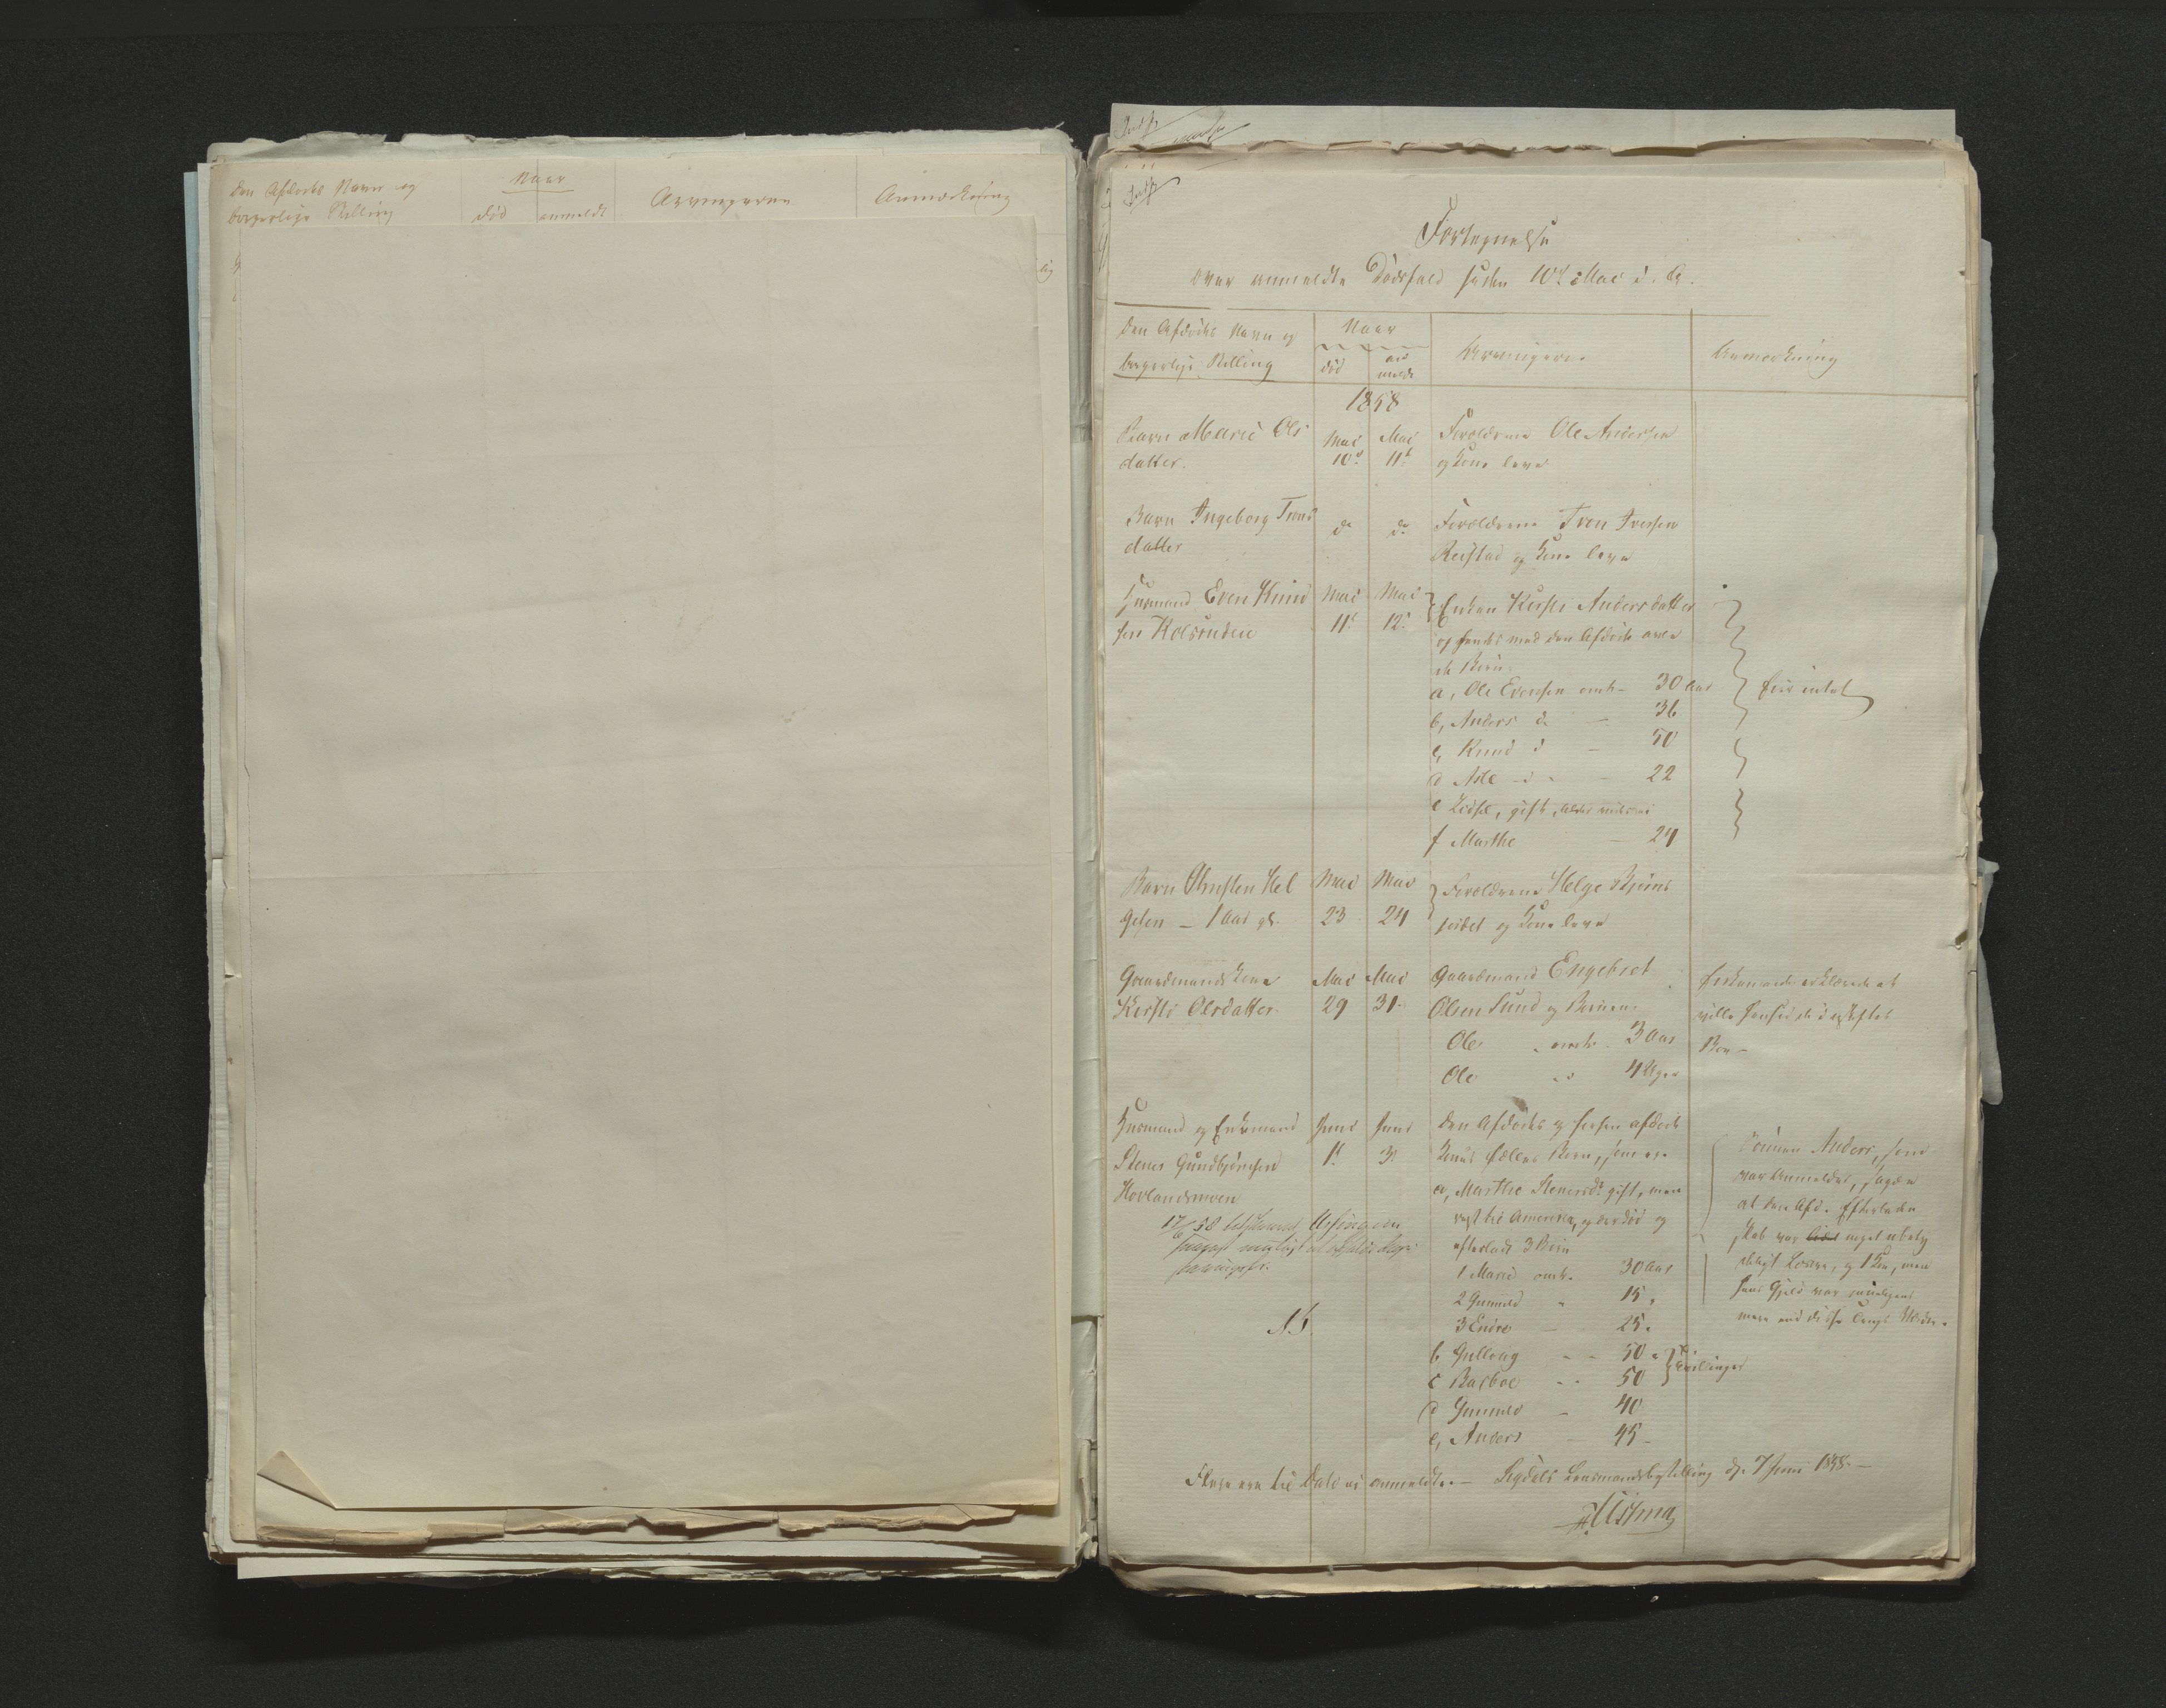 Den Afdødes Navn og
borgerlige Stilling
Naar
død
anmeldt
Arvingerne
Anmærkning
Fortegnelse
over anmeldte Dødsfald siden 10de Mai d. A.
Den Afdødes Navn og
borgerlige Stilling
Naar
død
an
meldt
Arvingerne
Anmærkning
1858
Barn Marie Ols
datter.
Mai
10d
Mai
11t
Forældrene Ole Andersen
og Kone leve
Barn Ingeborg Trons
datter
do
do
Forældrene Tron Iversen
Reistad og Kone leve
Husmand Even Knud
sen Kolsrudeie
Mai
11t
Mai
12t
Enken Kirsti Andersdatter
og hendes med den Afdøde avle
de Børn.
a, Ole Evensen omtr. 30 Aar
b, Anders do - 36
c, Knud d - 50
d Asle - d - 22
e Sidsel, gift,
f Marthe - 24
Eier intet
Barn Thorsten Hel
gesen - 1 Aar gl.
Mai
23
Mai
24
Forældrene Helge Bjøens
og Kone leve
Gaardmandskone
Kirsti Olsdatter.
Mai
29
Mai
31.
Gaardmand Engebret
Olsen Lund og Børnene.
Ole omtr. 3 Aar
Ole 4 Uger
Enkemanden erklærede at
ville hensidde i uskiftet
Bo -
Husmand og Enkemand
Stener Gundbjørnsen
Hovlandsmoen
Juni
1t
Juni
3.
Den Afdødes og hans afdøde
Kones fælles Børn, som ere
a, Marthe Stenersdt gift, men
reist til Amerika, og er død og
efterladt 3 Børn
1 Marie omtr. 30 Aar
2 Gunnild " 15 "
3 Endre - 25 "
b Gullaug - - 50 "
c Barboe - - 50
Tvillinger
d Gunnild - 40
e, Anders - 45 -
Sønnen Anders, som
var Anmelder, sagde
at den Afd. Efterladen
skab var noget ubety
deligt Løsøre, og 1 Ko, men
hans Gjæld var
mere end disse Tings Værdie.
17/6 58
Flere ere til Dato ei anmeldte. - Sigdals Lensmandsbestilling d. 7 Juni 1858. -